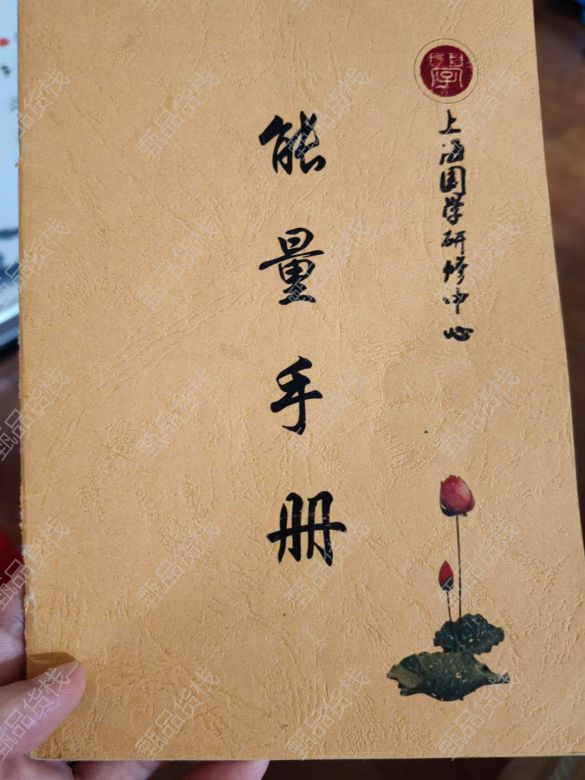 能量手册
上海国学研修中心
學
甄品货栈